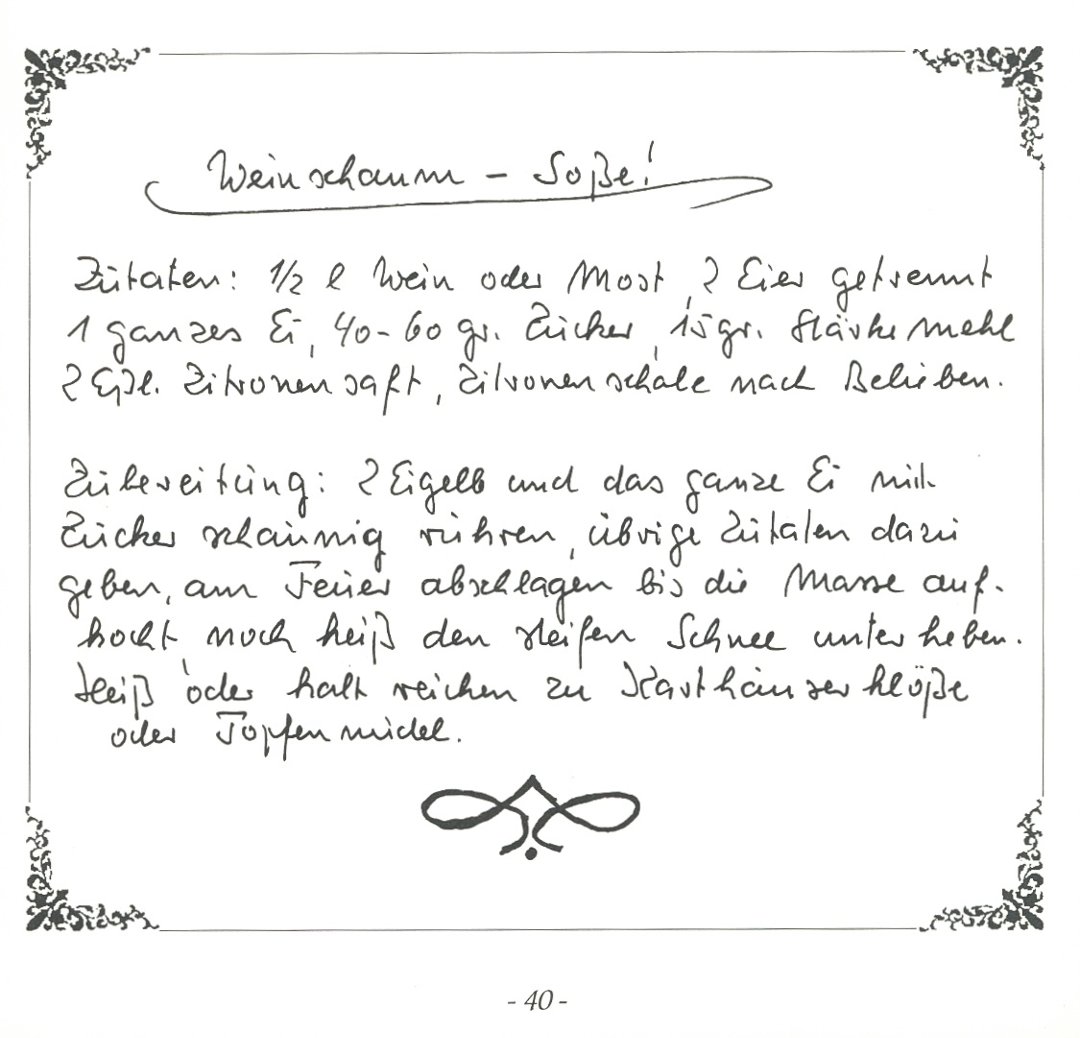 Weinschaum - Soße!
Zutaten: 1/2 l Wein oder Most, 2 Eier getrennt
1 ganzes Ei, 40-60 gr. Zucker, 15 gr. Stärkemehl
2 Eßl. Zitronensaft, Zitronenschale nach Belieben.
Zubereitung: 2 Eigelb und das ganze Ei mit
Zucker schaumig rühren, übrige Zutaten dazu
geben, am Feuer abschlagen bis die Masse auf-
kocht, noch heiß den steifen Schnee unterheben.
Heiß oder kalt reichen zu Karthäuserklöße
oder Topfennudel.
- 40 -